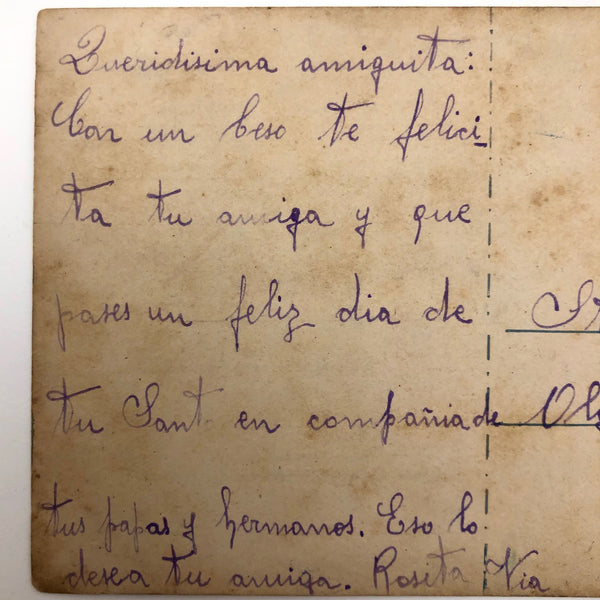 Queridisima amiguita:
Con un beso te felici
ta tu amiga y que
pases un feliz dia de
tu Sant en compañia de
tus papas y hermanos. Eso lo
desea tu amiga. Rosita Via